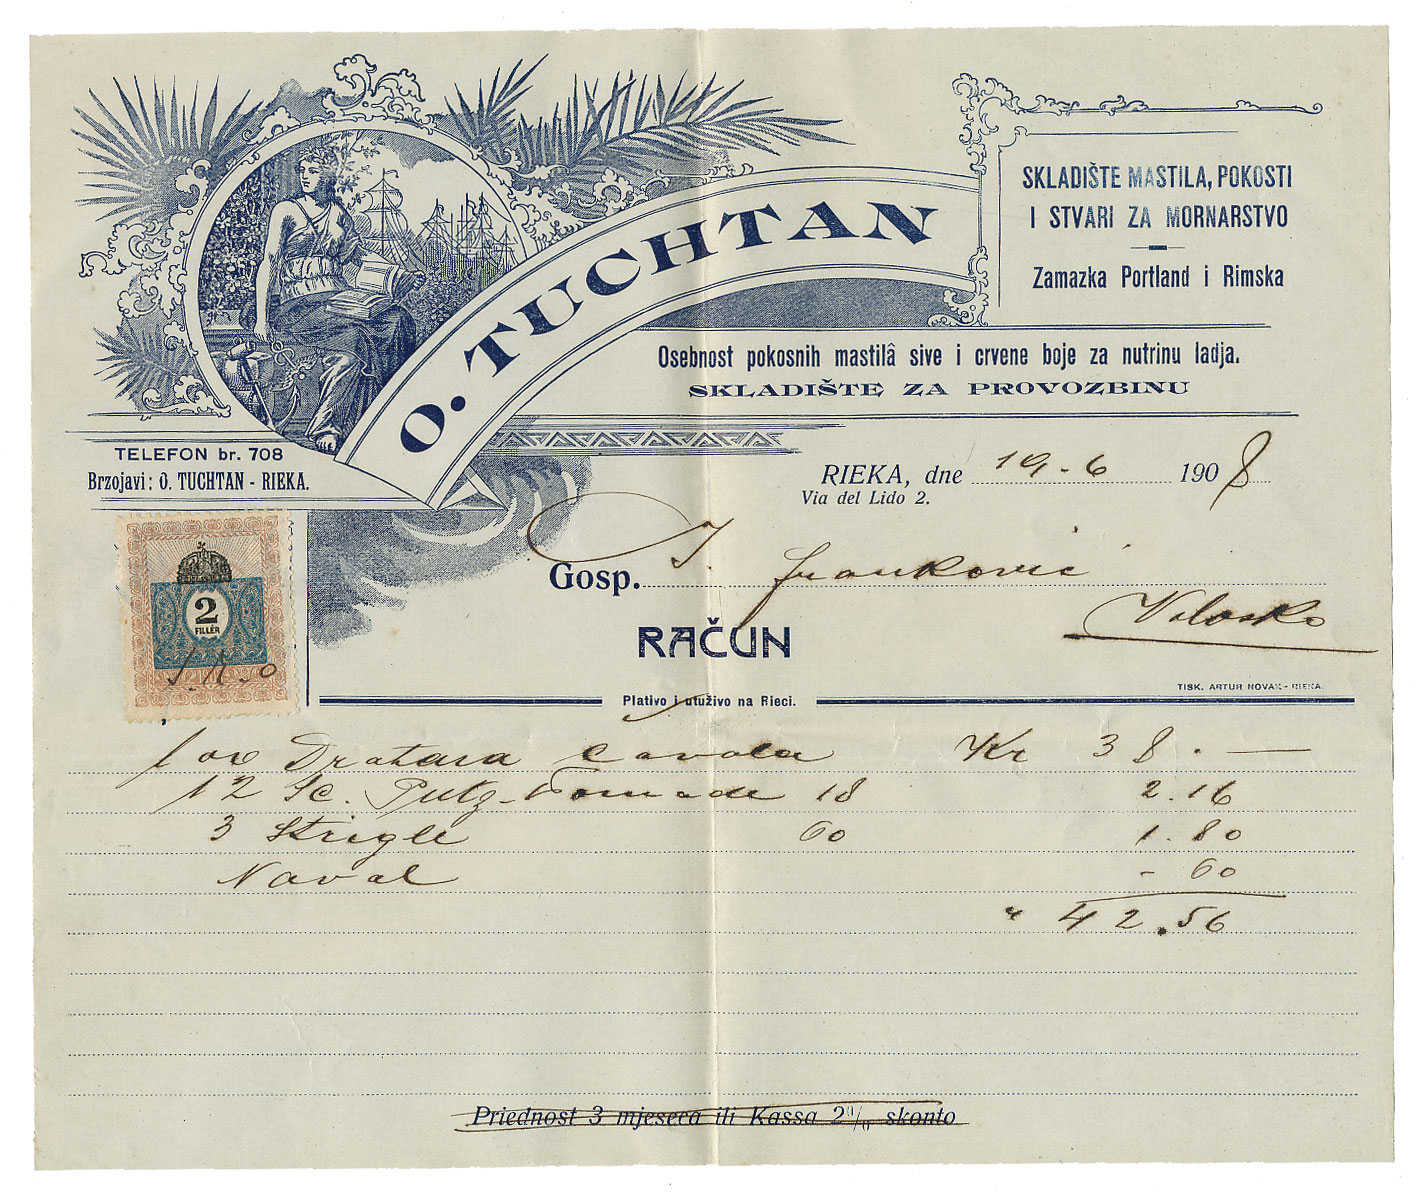 O. TUCHTAN
SKLADIŠTE MASTILA, POKOSTI
I STVARI ZA MORNARSTVO
Zamazka Portland i Rimska
Osebnost pokosnih mastilâ sive i crvene boje za nutrinu ladja.
SKLADIŠTE ZA PROVOZBINU
TELEFON br. 708
Brzojavi: O. TUCHTAN - RIEKA.
RIEKA, dne 19-6 1908
Via del Lido 2.
Gosp. J. Franković
Volosko
2
FILLÉR
RAČUN
TISK. ARTUR NOVAK - RIEKA.
Plativo i utuživo na Rieci.
Kr 38.—
12 Sc. Putz-Pomade 18 2.16
3 Strigle 60 1.80
Naval - 60
" 42.56
Priednost 3 mjeseca ili Kassa 2% skonto